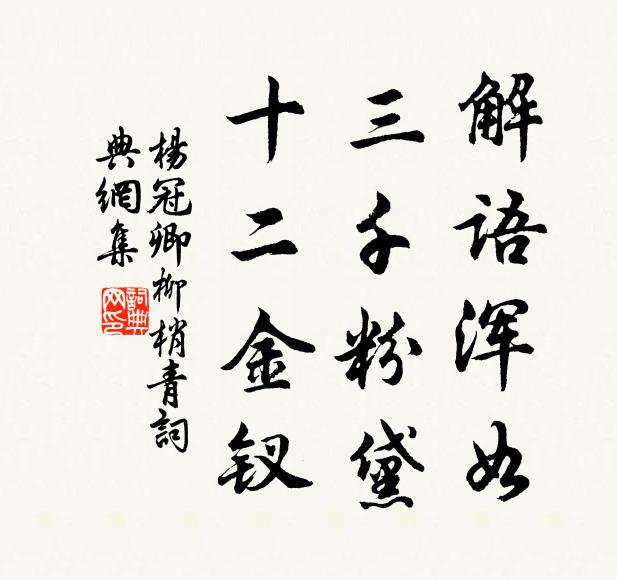 解语浑如
三千粉黛
十二金钗
楊冠卿柳梢青詞
典網集
詞典
网印